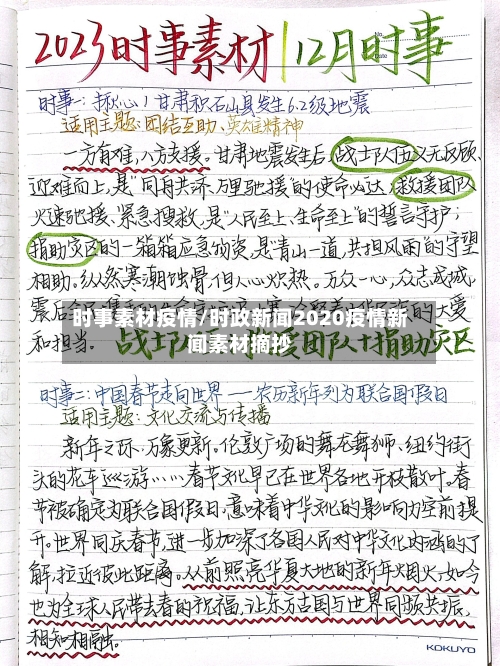 2023时事素材/12月时事
时事一:揪心!甘肃积石山县发生6.2级地震
适用主题:团结互助、英雄精神
一方有难,八方支援。甘肃地震发生后,战士队伍义无反顾、
迎难而上,是"同舟共济、万里驰援"的使命必达,救援团队
火速驰援、紧急搜救,是"人民至上、生命至上"的誓言守护;
捐助灾区的一箱箱应急物资,是"青山一道,共担风雨"的守望
相助。纵然寒潮蚀骨但人心炽热。万众一心,众志成城,
震后
的大爱
时事素材疫情/时政新闻2020疫情新
闻素材摘抄
和担当。战士队伍+救援团队+捐助灾区
时事二:中国春节走向世界——农历新年列为联合国假日
适用主题:文化交流与传播
新年之际,万象更新。伦敦广场的舞龙舞狮、纽约街
头的花车巡游……春节文化早已在世界各地开枝散叶。春
节被确定为联合国假日,意味着中华文化的影响力空前提
升。世界同庆春节,进一步加深了各国人民对中华文化内涵的了
解,拉近彼此距离。从前照亮华夏大地的新年烟火,如今
也为全球人民带去春的祝福,让东方古国与世界同频共振,
相知相融。
KOKUYO